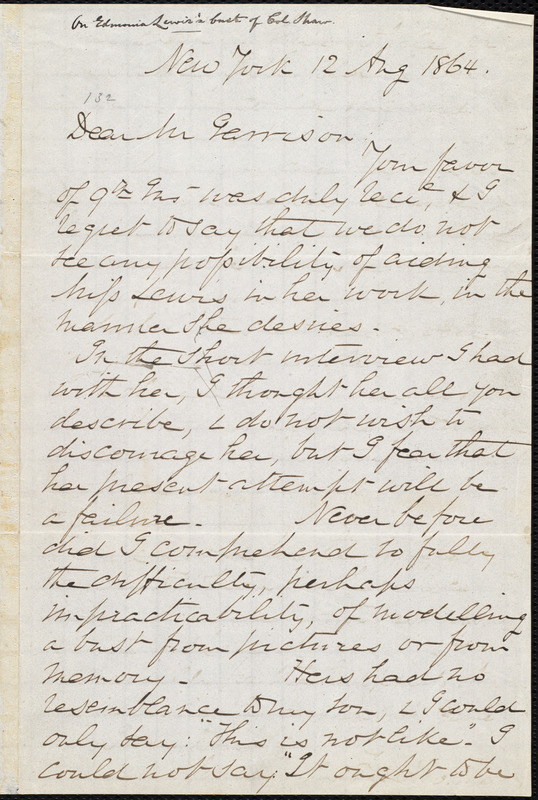 On Edmonia Lewis's bust of Col Shaw.
New York 12 Aug 1864.
132
Dear Mr Garrison,
Your favor
of 9th Inst was duly recd, & I
regret to say that we do not
see any possibility of aiding
Miss Lewis in her work, in the
manner she desires.
In the short interview I had
with her, I thought her all you
describe, & do not wish to
discourage her, but I fear that
her present attempt will be
a failure. Never before
did I comprehend so fully
the difficulty, perhaps
impracticability, of modelling
a bust from pictures or from
memory. Hers had no
resemblance to my son, & I could
only say: "This is not like". I
could not say: "It ought to be